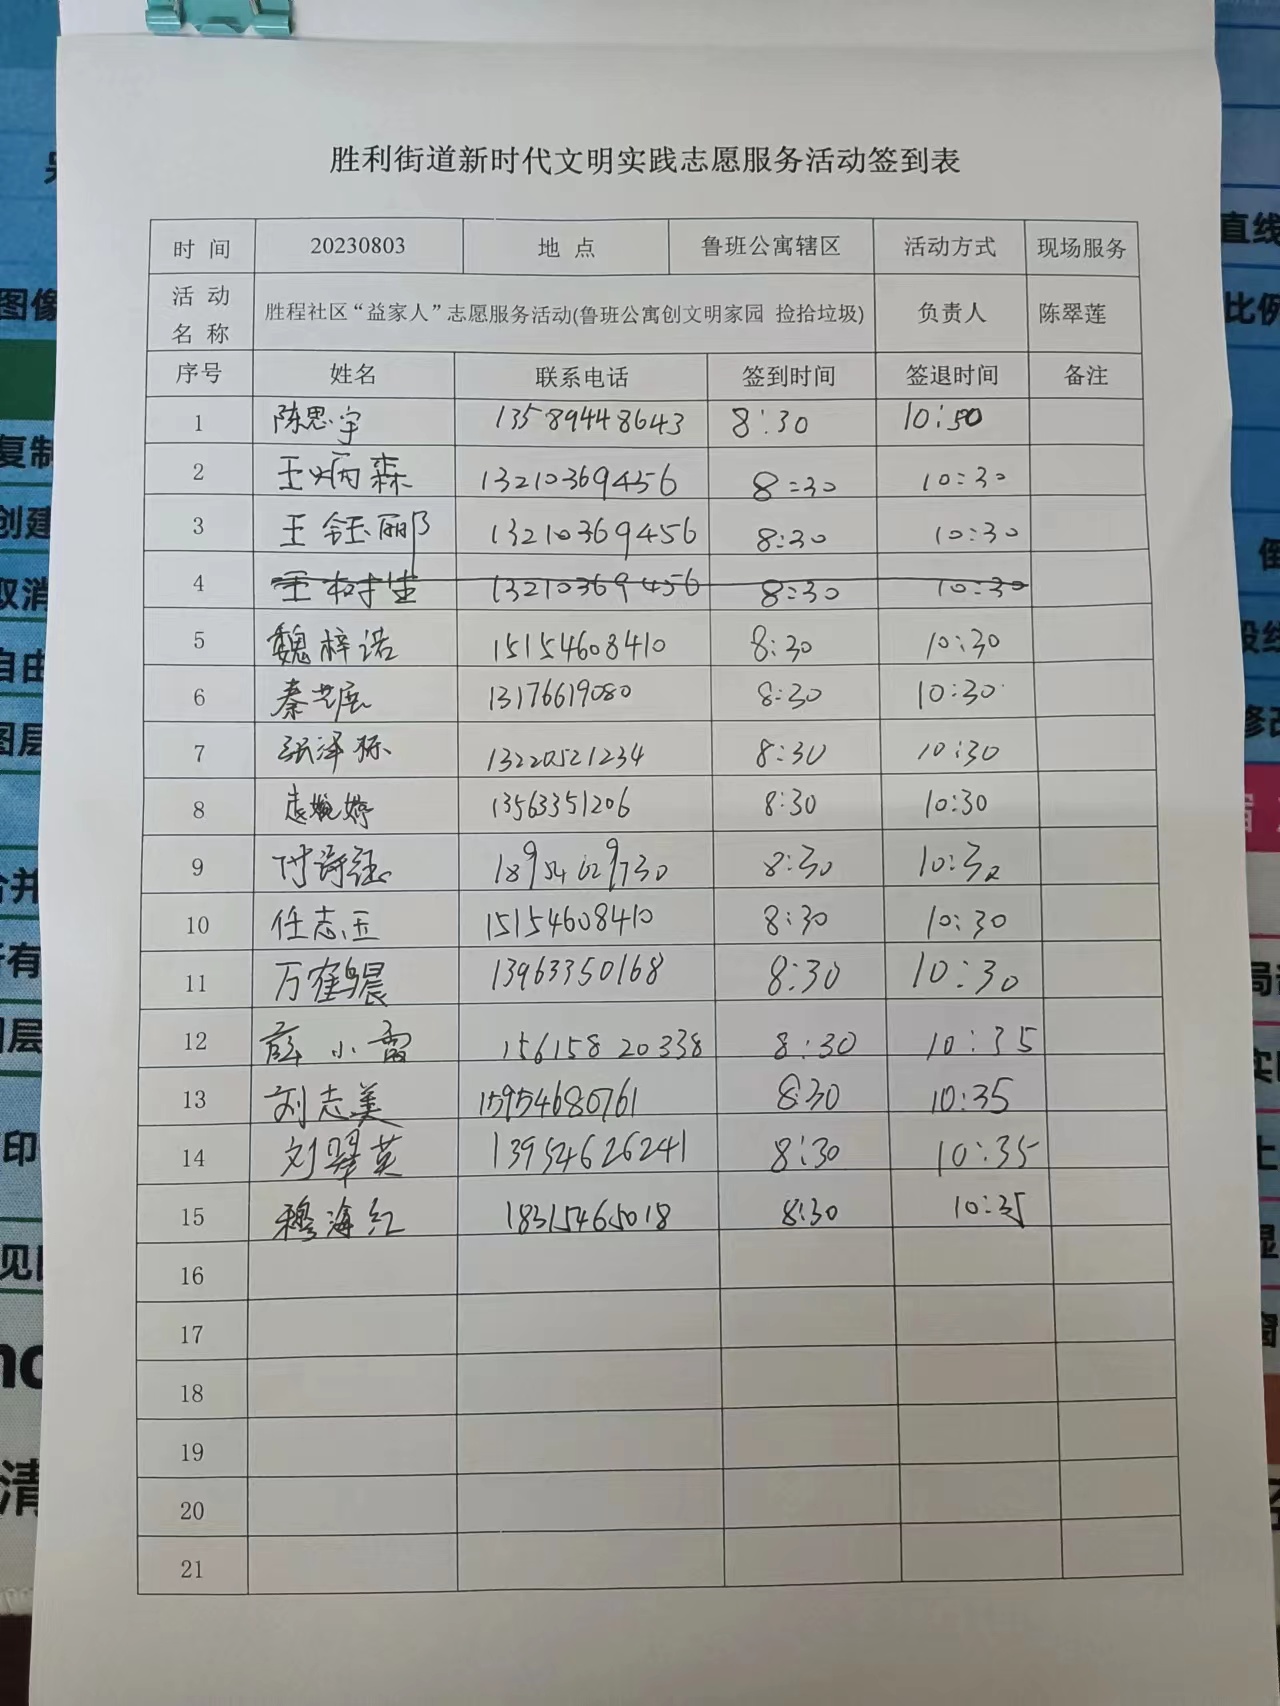 胜利街道新时代文明实践志愿服务活动签到表
时 间 20230803 地 点 鲁班公寓辖区 活动方式 现场服务
活 动 名 称 胜程社区“益家人”志愿服务活动(鲁班公寓创文明家园 捡拾垃圾) 负责人 陈翠莲
序号 姓名 联系电话 签到时间 签退时间 备注
1 陈思宇 13589448643 8:30 10:50
2 王炳森 13210369456 8:30 10:30
3 王钰郦 13210369456 8:30 10:30
4 王树生 13210369456 8:30 10:30
5 魏梓诺 15154608410 8:30 10:30
6 秦艺展 13176619080 8:30 10:30
7 张泽 13220521234 8:30 10:30
8 袁婉婷 13563351206 8:30 10:30
9 付诗 18954629730 8:30 10:30
10 任志玉 15154608410 8:30 10:30
11 万鹤晨 13963350168 8:30 10:30
12 薛小雷 15615820338 8:30 10:35
13 刘志美 15954680761 8:30 10:35
14 刘翠英 13954626241 8:30 10:35
15 穆海红 18315465018 8:30 10:35
16
17
18
19
20
21
直线
图像
比例
复制
创建
取消
自由
图层
修改
清